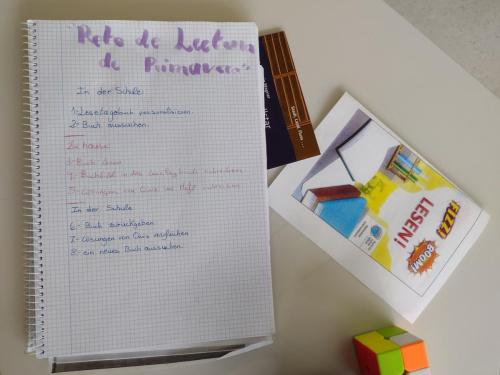 "Reto de Lectura
de Primavera"
In der Schule:
1.-Lesetagebuch personalisieren.
2.- Buch aussuchen.
Zu hause:
3.-Buch lesen
4.- Buchtitel in das Lesetagebuch
5.- Lösungen von Quiz ins Heft
In der Schule:
6.- Buch zurückgeben
7.- Lösungen von Quiz vergleichen
8.- ein neues Buch aussuchen.
FIZZ!
LESEN!
BOOM!